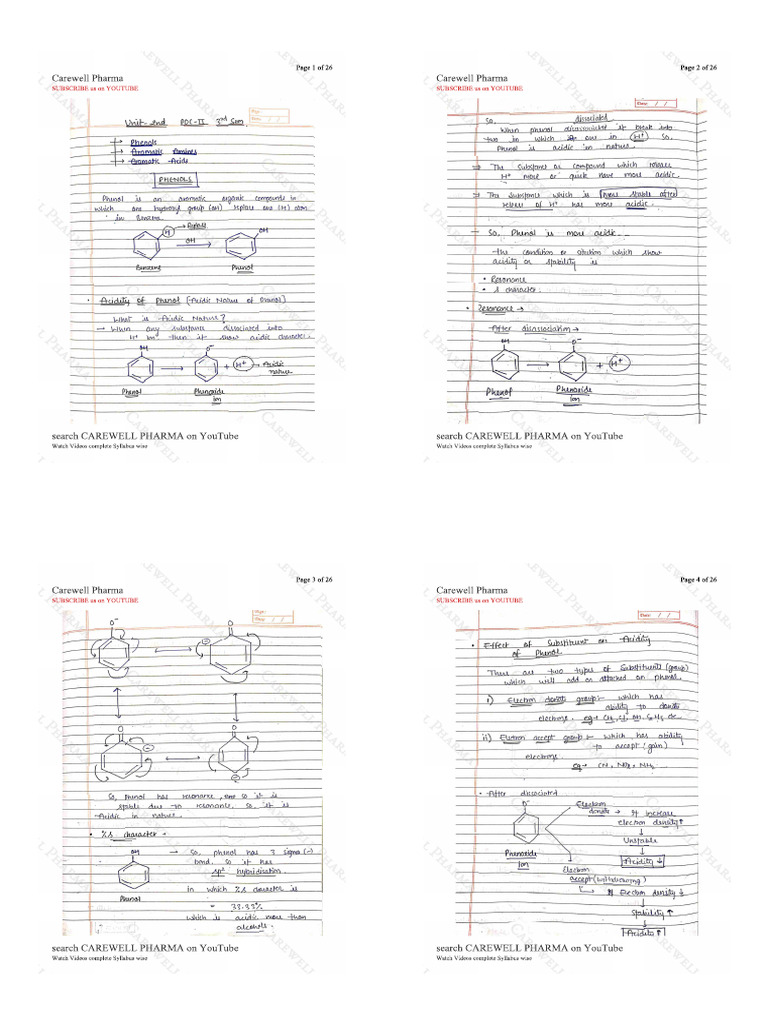 Page 1 of 26
Carewell Pharma
SUBSCRIBE us on YOUTUBE
Unit-2nd POC-II 3rd Sem
→ Phenols
→ Aromatic Amines
→ Aromatic Acids
PHENOLS
Phenol is an aromatic organic compounds in
which one hydroxy group (OH) replace one (H) atom
in Benzene.
H
OH
OH
Benzene
Phenol
• Acidity of Phenol (Acidic Nature of Phenol)
What is Acidic Nature?
→ When any substance dissociated into
H+ then it show acidic character.
OH
O-
+ H+ → Acidic
nature
Phenol
Phenoxide
Ion
search CAREWELL PHARMA on YouTube
Watch Videos complete Syllabus wise
Page 2 of 26
Carewell Pharma
SUBSCRIBE us on YOUTUBE
Date / /
So, dissociated
When phenol it break into
two in which one in H+ So,
Phenol is acidic in nature.
⇒ The Substance or compound which release
H+ more or quick have more acidic.
⇒ The Substance which is more stable after
release of H+ has more acidic.
→ So, Phenol is more acidic
the condition or which show
acidity or stability is
• Resonance
• s character.
• Resonance →
After →
OH
O-
+ H+
Phenol
Phenoxide
Ion
search CAREWELL PHARMA on YouTube
Watch Videos complete Syllabus wise
Page 3 of 26
Carewell Pharma
SUBSCRIBE us on YOUTUBE
Date / /
O-
O
O
O
So, Phenol has resonance, so it is
stable due to resonance. So, it is
Acidic in nature.
• %s character -
OH
→ So, phenol has 3 sigma (-)
bond. So it has
sp2 hybridisation
in which %s character is
= 33.33%
which is acidic more than
alcohols.
Phenol
search CAREWELL PHARMA on YouTube
Watch Videos complete Syllabus wise
Page 4 of 26
Carewell Pharma
SUBSCRIBE us on YOUTUBE
Date / /
• Effect of Substituent on Acidity
of Phenol.
There are two types of Substituents (group)
which will add or attached on phenol.
i) Electron donate group :- which has
ability to donate
electrons.
ii) Electron accept group :- which has ability
to accept (gain)
electrons.
eg → CN, NO2, NH2
• After dissociated
O-
Phenoxide
Ion
Electron
donate → It increase
electron density ↑
Unstable
Acidity ↓
Electron
accept (withdrawing)
Electron density ↓
Stability ↑
Acidity ↑
search CAREWELL PHARMA on YouTube
Watch Videos complete Syllabus wise